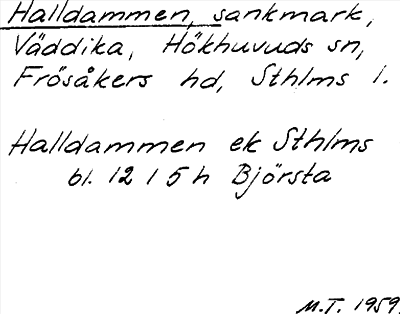 Halldammen, sankmark,
Väddika, Hökhuvuds sn,
Frösåkers hd, Sthlms l.
Halldammen ek Sthlms
bl. 12 I 5 h Björsta
M.T. 1959.